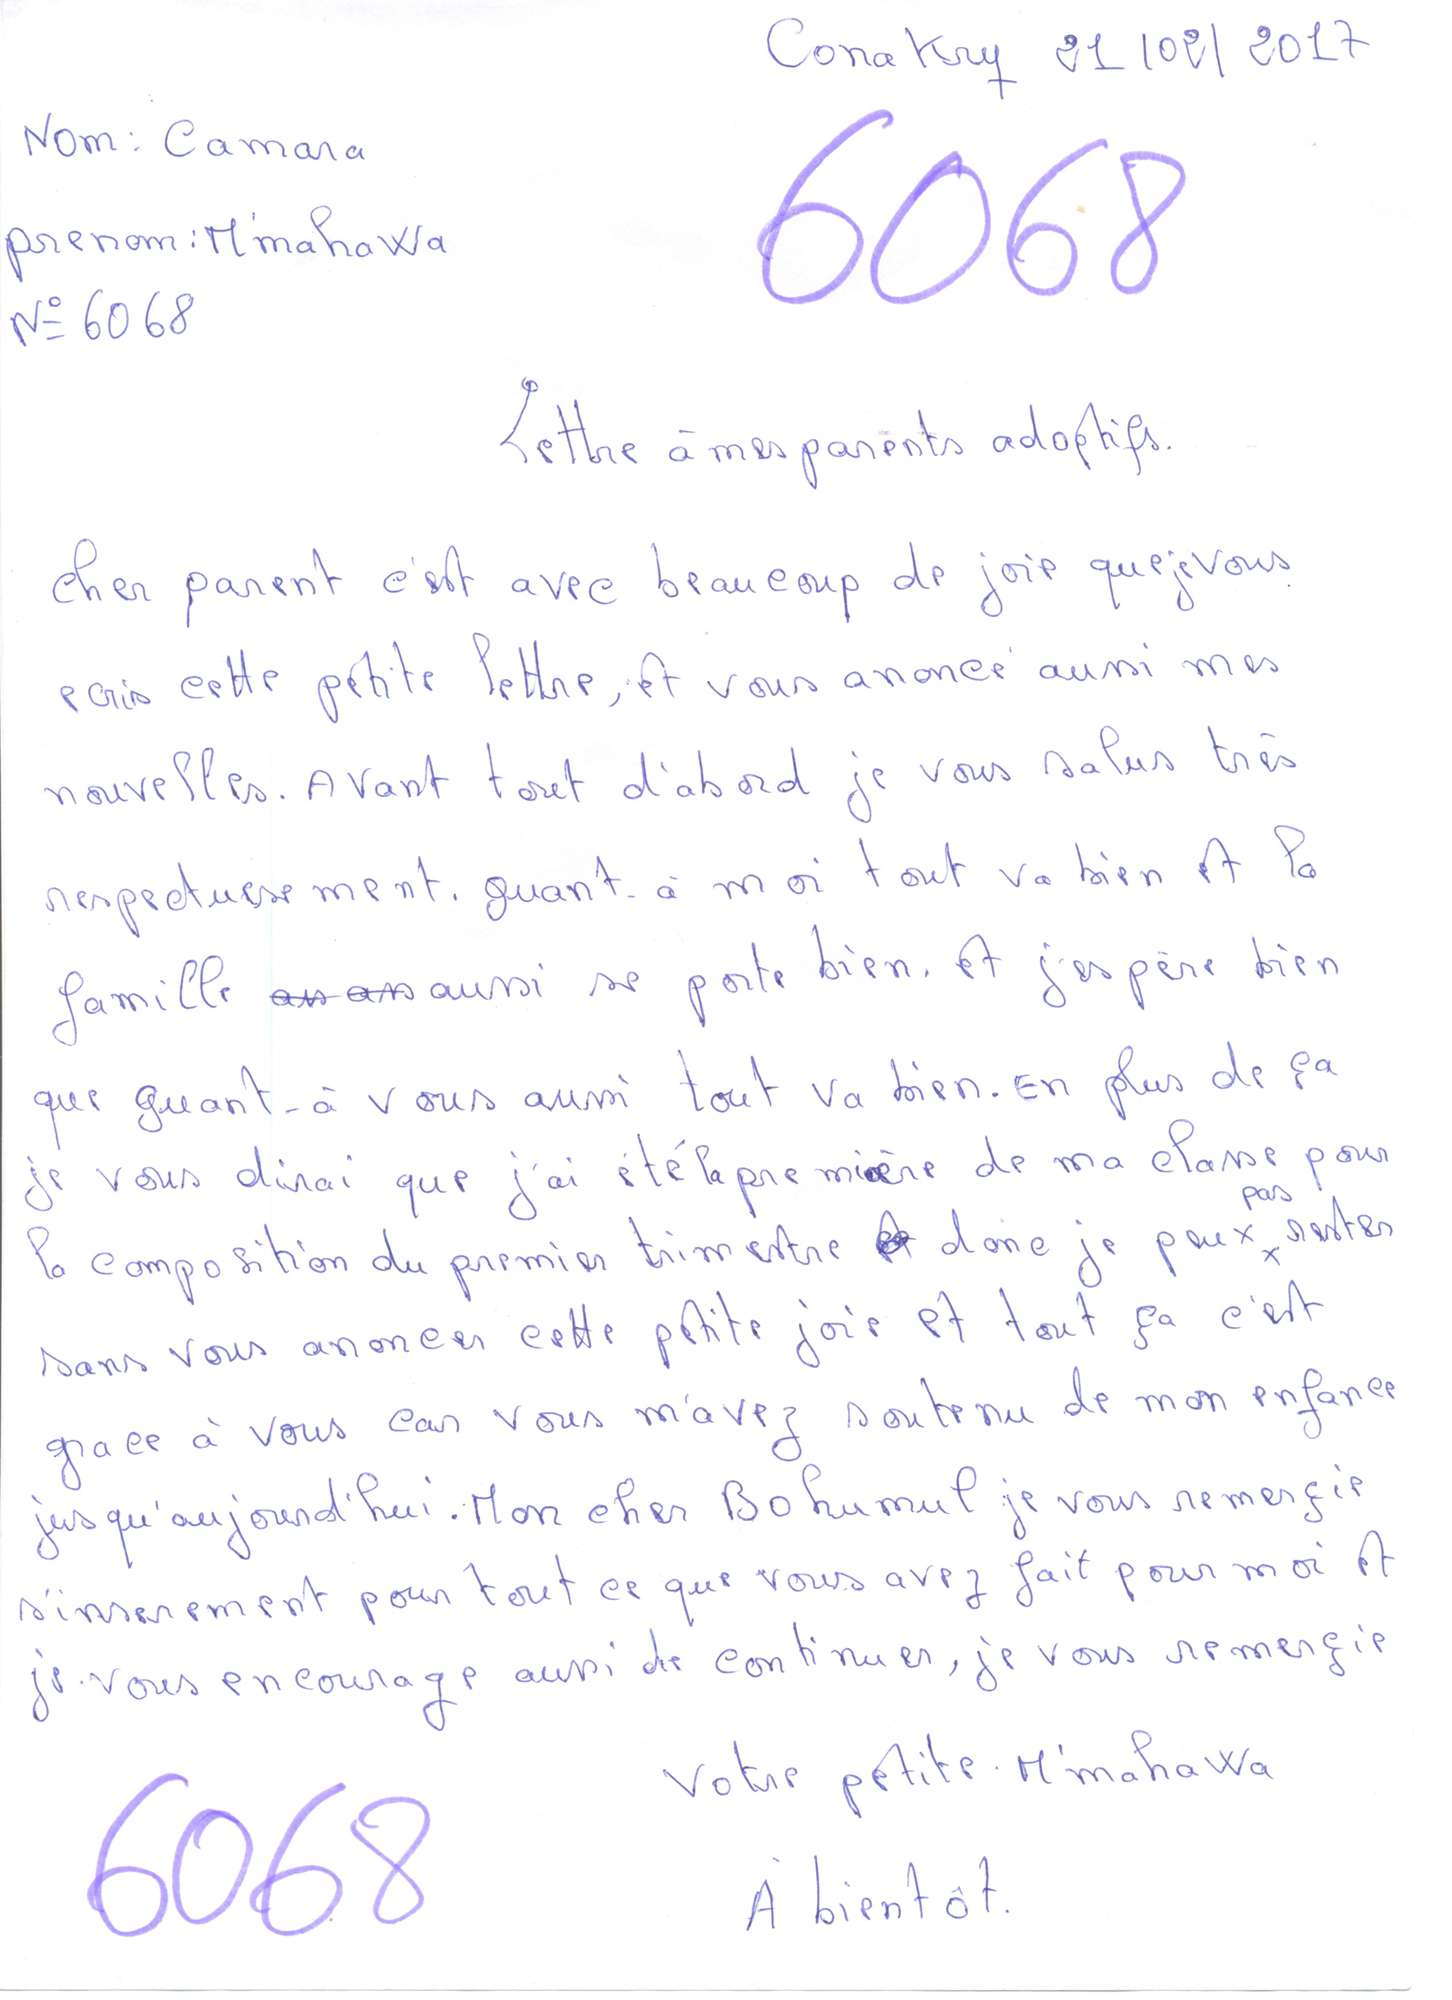 Conakry 21/02/2017
Nom: Camara
6068
prenom: M'mahawa
N° 6068
Lettre à mes parents adoptifs.
Cher parent c'est avec beaucoup de joie que je vous
ecris cette petite lettre, et vous anoncé aussi mes
nouvelles. Avant tout d'abord je vous salus très
respectuesement. quant-à moi tout va bien et la
famille aussi se porte bien. et j'espère bien
que quant-à vous aussi tout va bien. En plus de ça
je vous dirai que j'ai été la première de ma classe pour
la composition du premier trimestre donc je peux pas rester
sans vous anoncer cette petite joie et tout ça c'est
grace à vous car vous m'avez soutenu de mon enfance
jusqu'aujourd'hui. Mon cher Bohumul je vous remerçie
s'inserement pour tout ce que vous avez fait pour moi et
je vous encourage aussi de continuer, je vous remerçie
Votre petite M'mahawa
6068
À bientôt.